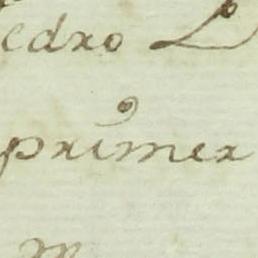 edro L
primer